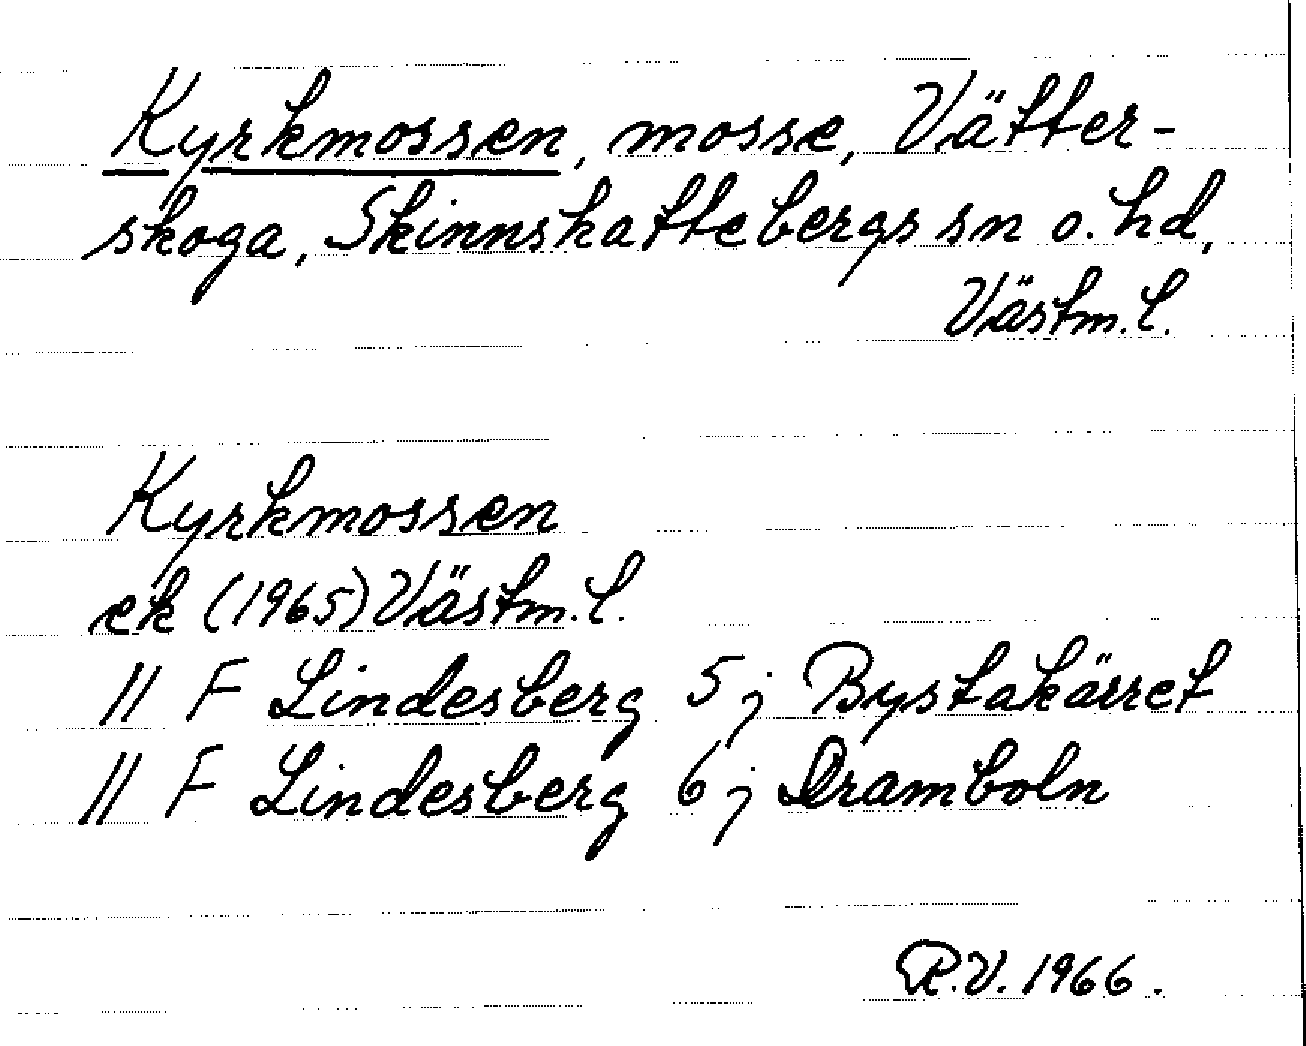 Kyrkmossen, mosse, Vätter-
skoga, Skinnskattebergs sn o. hd,
Västm. l.
Kyrkmossen
ek (1965) Västm. l.
11 F Lindesberg 5 j Bystakärret
11 F Lindesberg 6 j Dramboln
R.V. 1966.